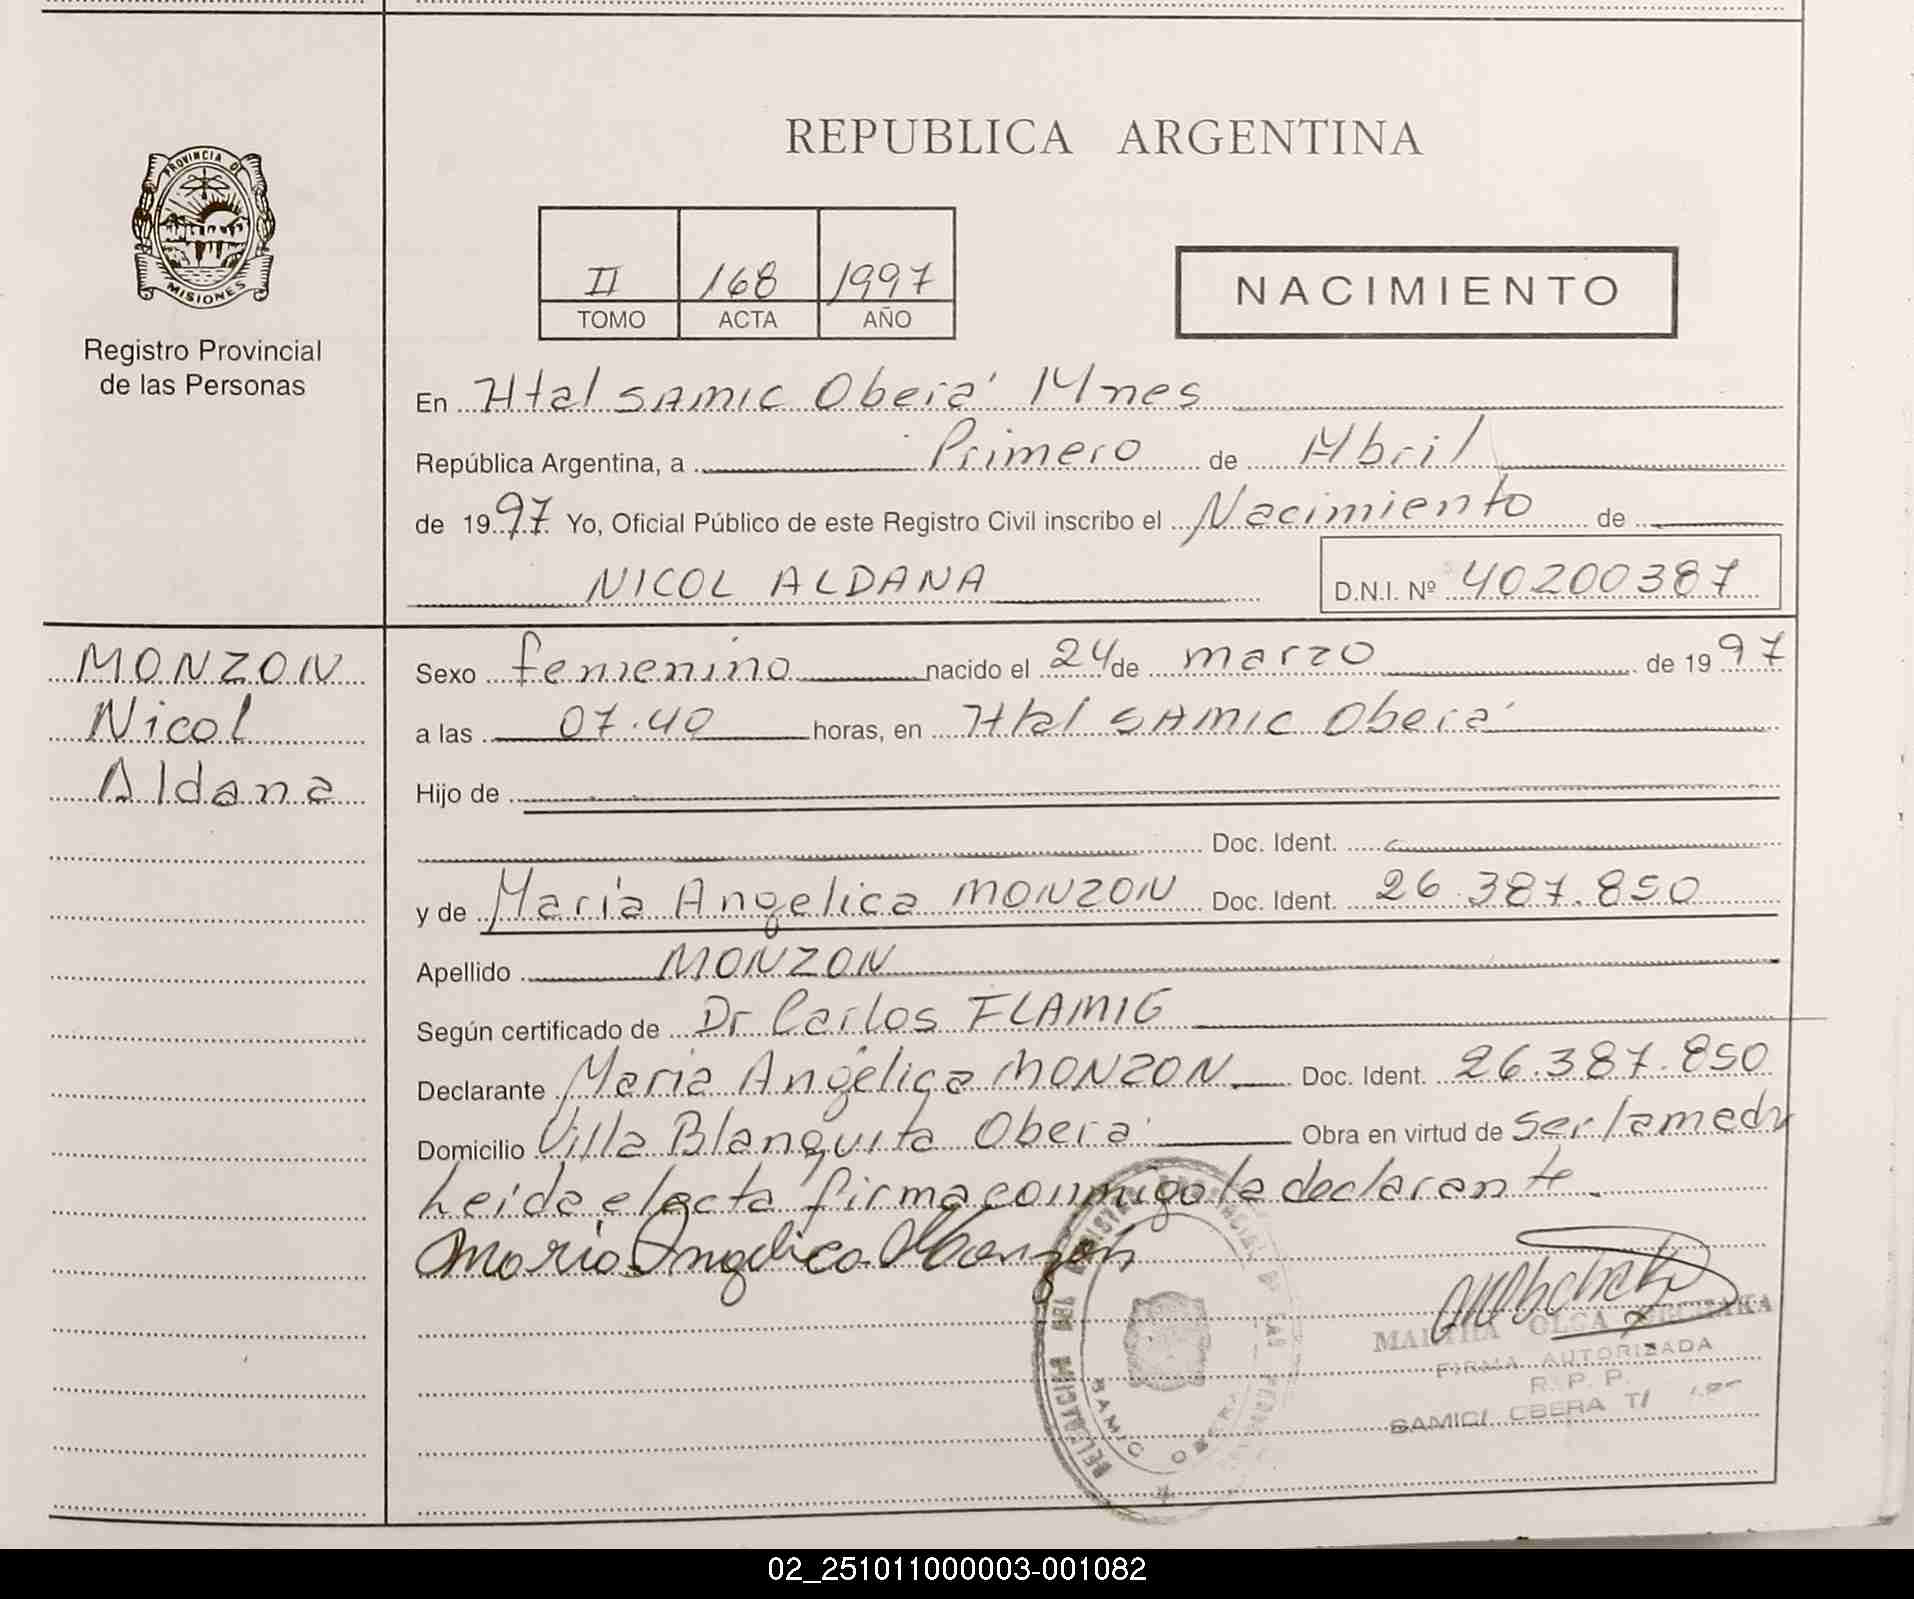 REPUBLICA ARGENTINA
PROVINCIA DE
MISIONES
Registro Provincial
de las Personas
II 168 1997
TOMO ACTA AÑO
NACIMIENTO
En Htal SAMIC Oberá Mnes
República Argentina, a Primero de Abril
de 1997 Yo, Oficial Público de este Registro Civil inscribo el Nacimiento de
NICOL ALDANA D.N.I. Nº 40200387
MONZON
Nicol
Aldana
Sexo femenino nacido el 24 de marzo de 1997
a las 07.40 horas, en Htal SAMIC Oberá
Hijo de
Doc. Ident.
y de Maria Angelica MONZON Doc. Ident. 26.387.850
Apellido MONZON
Según certificado de Dr Carlos FLAMIG
Declarante Maria Angélica MONZON Doc. Ident. 26.387.850
Domicilio Villa Blanquita Oberá Obra en virtud de ser la madr
Leida el acta firma conmigo la declarante.
Maria Angelica Monzon
MARTHA OLGA
FIRMA AUTORIZADA
R. P. P.
SAMIC/ OBERA
SAMIC OBERA
02_251011000003-001082